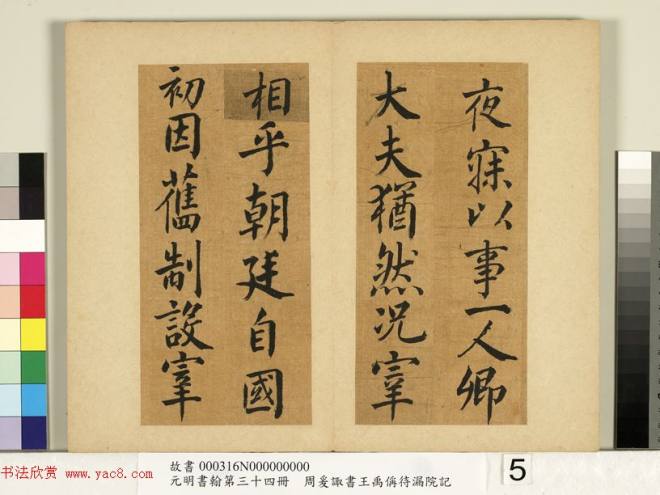 夜寐以事一人卿
大夫猶然况宰
相乎朝廷自國
初因舊制設宰
故書 000316N000000000
元明書翰第三十四冊 周爰諏書王禹偁待漏院記
5
书法欣赏 www.yac8.com